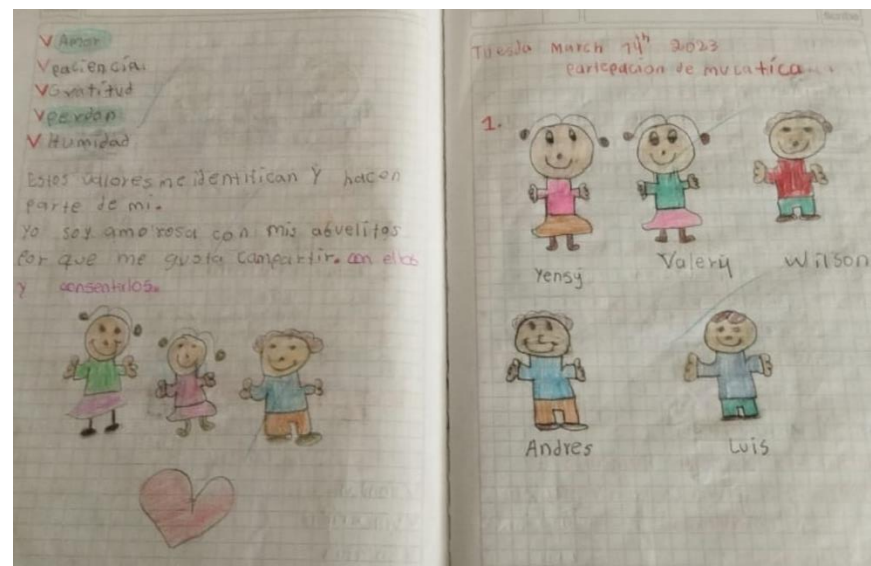 V Amor
V paciencia
V Gratitud
V perdon
V Humidad
Estos valores me identifican y hacen
parte de mi.
Yo soy amorosa con mis abuelitos
Por que me gusta campartir. con ellos
y consentalos.
Tuesda March 14h 2023
participacion de
1.
Yensy
Valery
Wilson
Andres
Luis